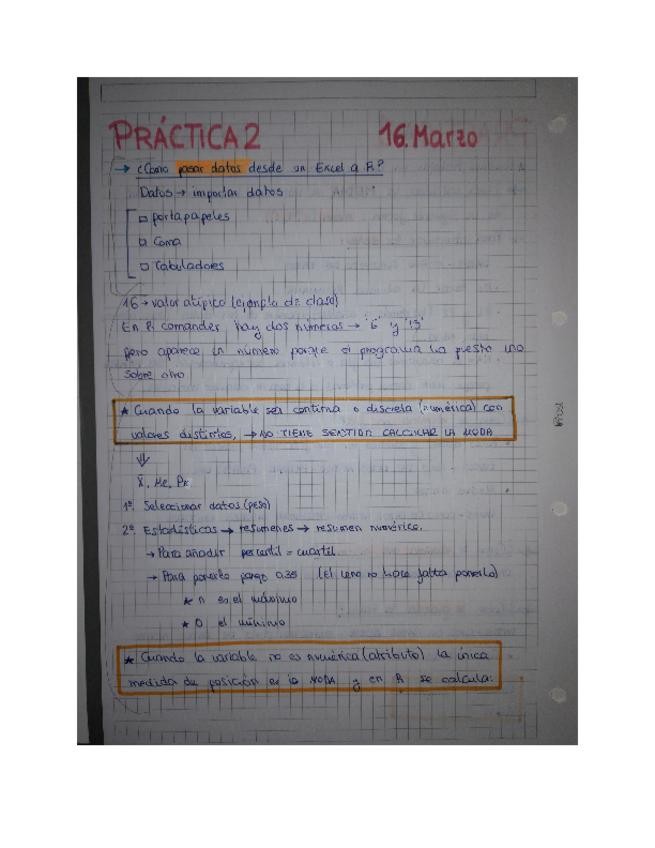 PRÁCTICA 2 16. Marzo
→ ¿Como pasar datos desde un Excel a R?
Datos → importar datos
□ portapapeles
□ Coma
□ Tabuladores
16 → valor atípico (ejemplo de clase)
En R comander hay dos números → '6' y '13'
pero aparece un número porque el programa ha puesto uno
sobre otro
★ Cuando la variable sea continua o discreta (numérica) con
valores distintos, → NO TIENE SENTIDO CALCULAR LA MODA
X̄, Me, Pk
1º. Seleccionar datos (peso)
2º. Estadísticas → resúmenes → resumen numérico.
→ Para añadir percentil = cuartil
→ Para ponerlo pongo 0.35 (el cero no hace falta ponerlo)
★ n es el máximo
★ 0 el mínimo
★ Cuando la variable no es numérica (atributo) la única
medida de posición es la MODA y en R se calcula: